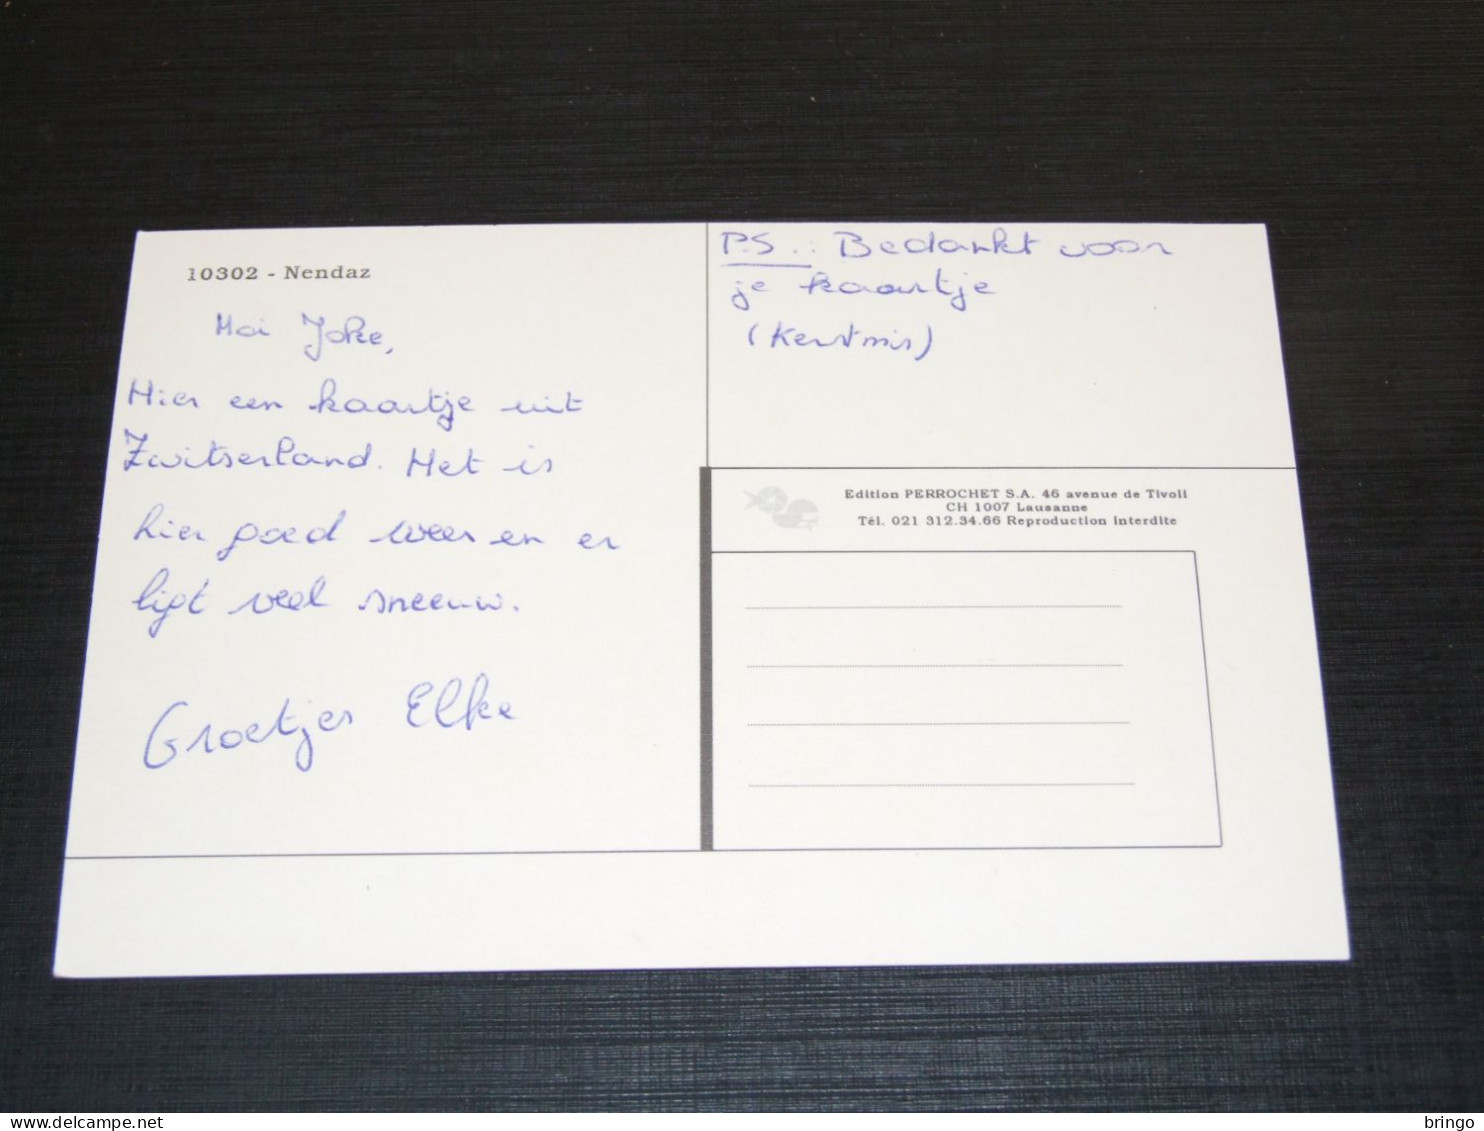 10302 - Nendaz
Hoi Joke,
Hier een kaartje uit
Zwitserland. Het is
hier goed weer en er
ligt veel sneeuw.
Groetjes Elke
P.S.: Bedankt voor
je kaartje
(Kerstmis)
Edition PERROCHET S.A. 46 avenue de Tivoli
CH 1007 Lausanne
Tél. 021 312.34.66 Reproduction interdite
delcampe.net
bringo